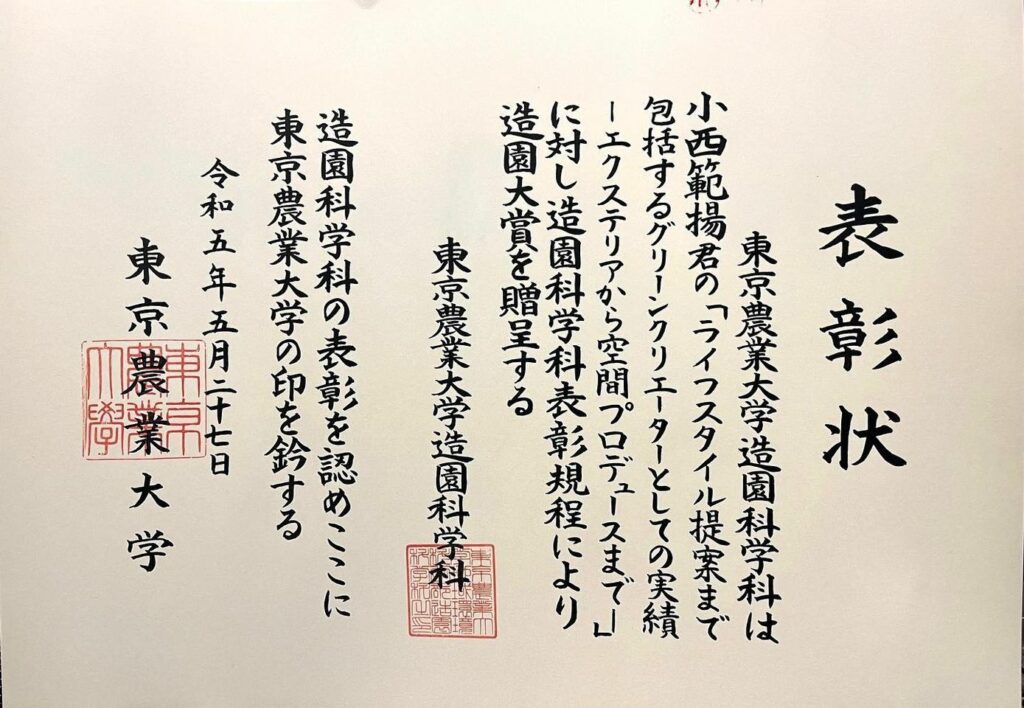 表彰状
東京農業大学造園科学科は
小西範揚君の「ライフスタイル提案まで
包括するグリーンクリエーターとしての実績
ーエクステリアから空間プロデュースまでー」
に対し造園科学科表彰規程により
造園大賞を贈呈する
東京農業大学造園科学科
造園科学科の表彰を認めここに
東京農業大学の印を鈐する
令和五年五月二十七日
東京農業大学
東京農業大學